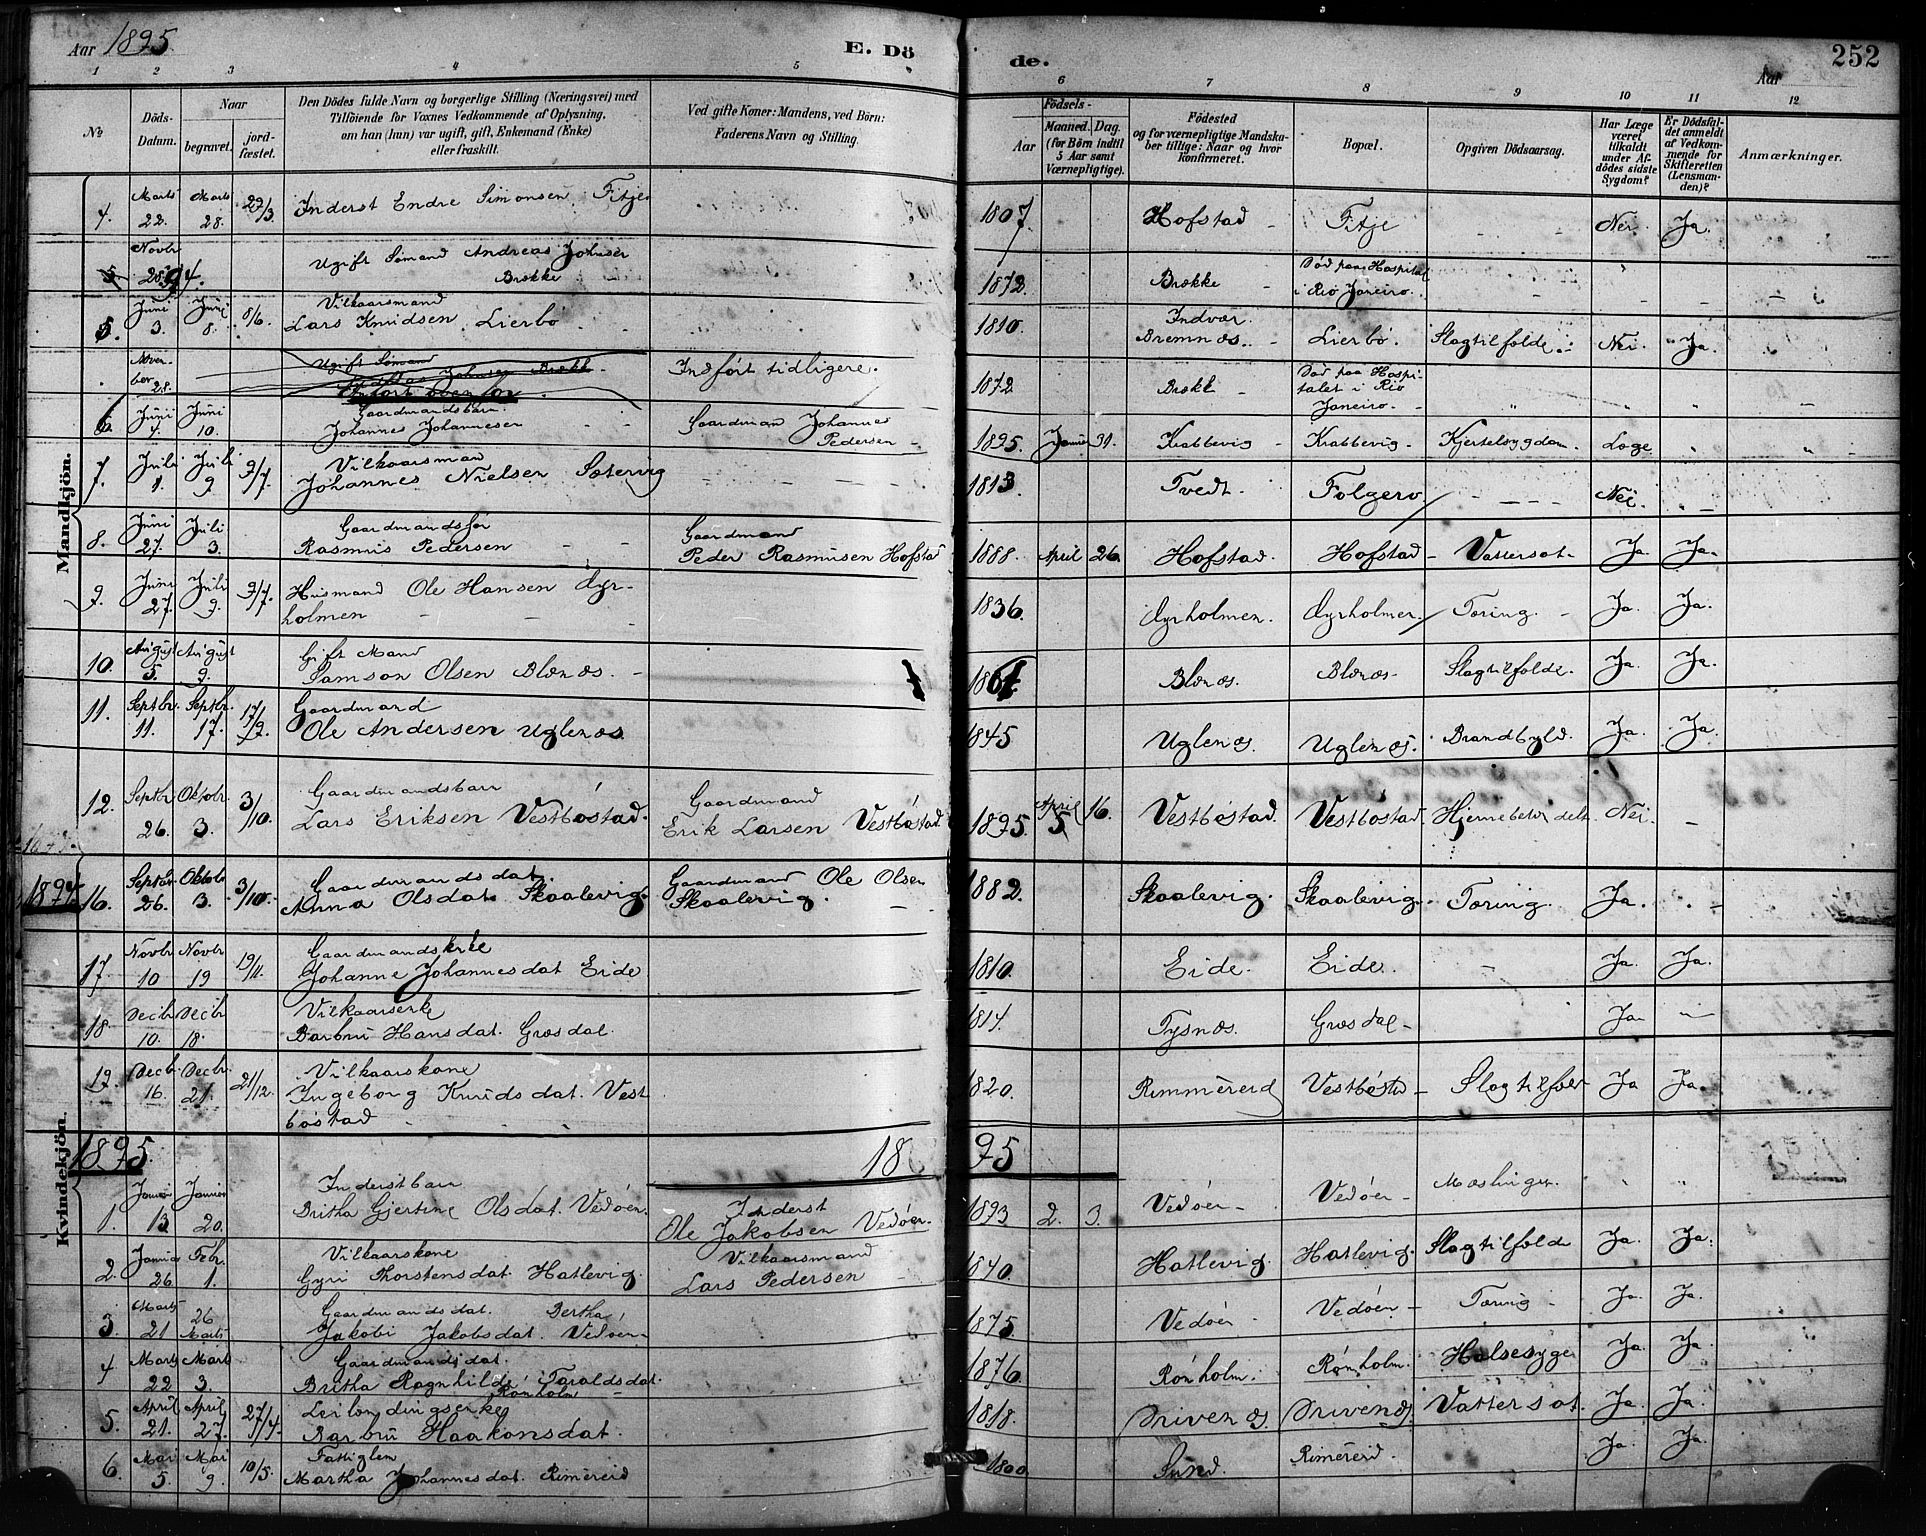 Aar 1895. E. Döde. Aar 252
1 2 3 4 5 6 7 8 9 10 11 12
No
Döds-Datum.
Naar
begravet.
jordfæstet.
Den Dödes fulde Navn og borgerlige Stilling (Næringsvei) med
Tilföiende for Voxnes Vedkommende af Oplysning,
om han (hun) var ugift, gift, Enkemand (Enke)
eller fraskilt.
Ved gifte Koner: Mandens, ved Börn:
Faderens Navn og Stilling.
Födsels-
Aar
Maaned. Dag.
(for Börn indtil
5 Aar samt
Værnepligtige).
Födested
og for værnepligtige Mandska-
ber tillige: Naar og hvor
konfirmeret.
Bopæl.
Opgiven Dödsaarsag.
Har Læge
været
tilkaldt
under Af-
dödes sidste
Sygdom?
Er Dödsfal-
det anmeldt
af Vedkom-
mende for
Skifteretten
(Lensman-
den)?
Anmærkninger.
Mandkjön.
4. Marts 22. Marts 28. 29/3 Inderst Endre Simonsen Fitje 1807 Hofstad Fitje Nei. Ja.
5 Novbr 28/94. Ugift Sömand Andreas Johnsen
Brække 1872. Brække Död paa Hospital
i Rio Janeiro.
5. Juni 3. Juni 8. 8/6. Vilkaarsmand
Lars Knudsen Lierbö 1810. Indvær
Bremnæs. Lierbö. Slagtilfælde Nei Ja.
November 28. Ugift Sömand
Johnsen Brække
Indfört tidligere. 1872 Brække Död paa Hospi-
talet i Rio
Janeiro.
6. Juni 4. Juni 10. Gaardmandsbarn.
Johannes Johannesen Gaardmand Johannes
Pedersen 1895. Januar 31. Krabbevig Krabbevig Kjertelsygdom. Læge
7. Juli 1. Juli 9 9/7. Vilkaarsman
Johannes Nielsen Sætervig 1813. Tvedt. Folgerö Nei.
8. Juni 27. Juli 3. Gaardmandssön
Rasmus Pedersen Gaardmand
Peder Rasmusen Hofstad 1888. April 26. Hofstad. Hofstad Vattersot. Ja. Ja.
9. Juni 27. Juli 9. 9/7. Husmand Ole Hansen Dyr-
holmen 1836. Dyrholmen. Dyrholmen Tæring. Ja. Ja.
10. August 5. August 9. Gift Mand
Samson Olsen Blænæs Blænæs. Blænæs Slagtilfælde. Ja. Ja.
11. Septbr. 11. Septbr. 17. 17/9. Gaardmand
Ole Andersen Uglenæs 1845 Uglenæs. Uglenæs. Brandbyld. Ja. Ja.
12. Septbr. 26. Oktobr. 3. 3/10. Gaardmandsbarn
Lars Eriksen Vestböstad. Gaardmand
Erik Larsen Vestböstad. 1895. April 5 16. Vestböstad. Vestböstad. Nei.
1894.
16. Septbr. 26. Oktobr 3. 3/10. Gaardmandsdat.
Anna Olsdat. Skaalevig. Gaardmand Ole Olsen
Skaalevig. 1882. Skaalevig. Skaalevig. Tæring. Ja.
17. Novbr 10 Novbr 19 19/11. Gaardmandsenke
Johanne Johannesdat Eide 1810. Eide. Eide. Ja. Ja.
18. Decbr 10. Decbr 18. Vilkaarsenke
Barbru Hansdat. Græsdal. 1814. Tysnæs. Græsdal Ja
19. Decbr. 16. Decbr. 21. 21/12. Vilkaarskone
Ingeborg Knudsdat. Vest
böstad 1820. Rimmereid Vestbösta Slagtilfæl Ja Ja.
Kvindekjön.
1895. 1895
1. Januar Januar 20. Inderstbarn
Britha Gjertine Olsdat. Vedöen. Inderst
Ole Jakobsen Vedöen. 1893 2. 3. Vedöen Vedöen Mæslinger.
2. Januar 26 Febr. 1. Vilkaarskone
Gyri Thorstensdat. Hatlevig. Vilkaarsmand
Lars Pedersen 1840. Hatlevig. Hatlevig. Slagtilfælde Ja. Ja.
3. Marts 21 26 Marts Gaardmandsdat. Bertha
Jakobi Jakobsdat. Vedöen 1875. Vedöen Vedöen Tæring Ja. Ja.
4 Marts 22. Marts 3. Gaardmandsdat.
Britha Ragnhilde Taraldsdat.
Rönholm 1876. Rönholm. Rönholm. Halsesyge Ja Ja.
5. April 21. April 27. 27/4. Leilændingsenke
Barbru Haakonsdat. 1818. Drivenæs Drivenæs Vattersot. Ja. Ja.
6. Mai 5 Mai 9. 10/5. Fattiglem
Martha Johannesdat Rimereid 1800 Sund. Rimereid Ja. Ja.